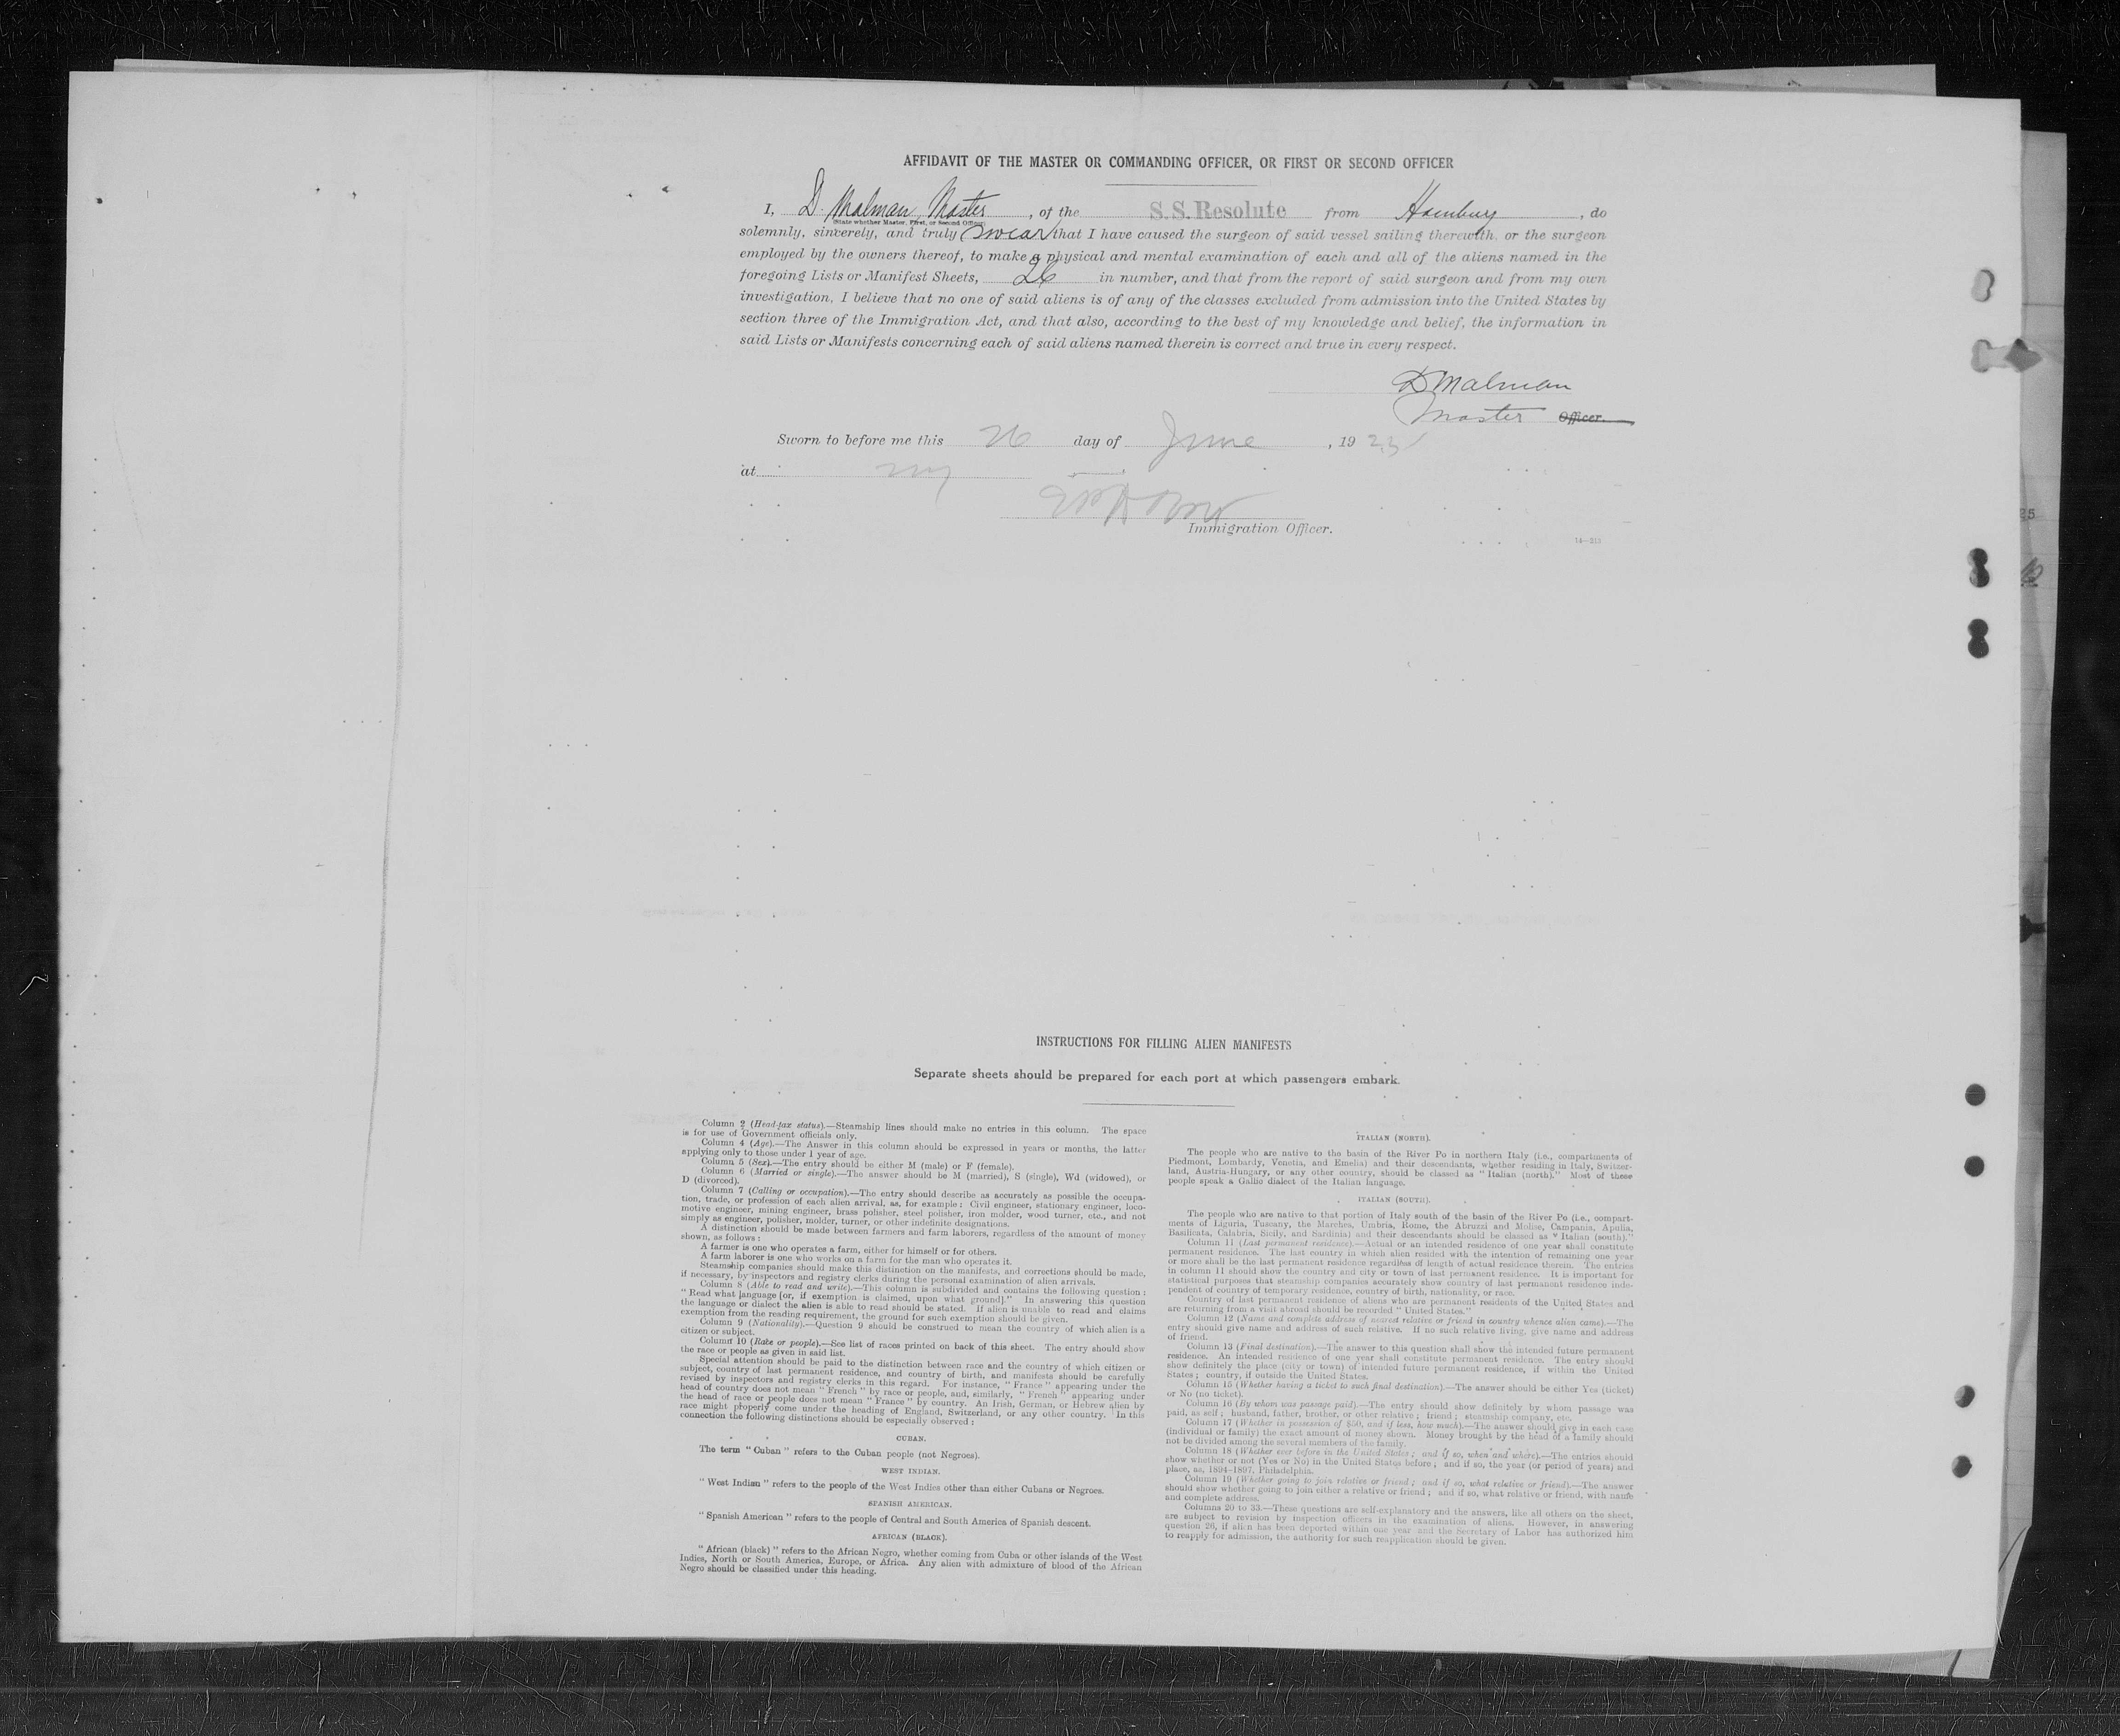 AFFIDAVIT OF THE MASTER OR COMMANDING OFFICER, OR FIRST OR SECOND OFFICER
I, D. Malman, Master, of the S.S. Resolute from Hamburg, do
(State whether Master, First, or Second Officer)
solemnly, sincerely, and truly swear that I have caused the surgeon of said vessel sailing therewith, or the surgeon
employed by the owners thereof, to make a physical and mental examination of each and all of the aliens named in the
foregoing Lists or Manifest Sheets, 26 in number, and that from the report of said surgeon and from my own
investigation, I believe that no one of said aliens is of any of the classes excluded from admission into the United States by
section three of the Immigration Act, and that also, according to the best of my knowledge and belief, the information in
said Lists or Manifests concerning each of said aliens named therein is correct and true in every respect.
D Malman
Master Officer.
Sworn to before me this 26 day of June, 1923
at NY
Immigration Officer.
14—213
INSTRUCTIONS FOR FILLING ALIEN MANIFESTS
Separate sheets should be prepared for each port at which passengers embark.
Column 2 (Head-tax status).—Steamship lines should make no entries in this column. The space
is for use of Government officials only.
Column 4 (Age).—The Answer in this column should be expressed in years or months, the latter
applying only to those under 1 year of age.
Column 5 (Sex).—The entry should be either M (male) or F (female).
Column 6 (Married or single).—The answer should be M (married), S (single), Wd (widowed), or
D (divorced).
Column 7 (Calling or occupation).—The entry should describe as accurately as possible the occupa-
tion, trade, or profession of each alien arrival, as, for example: Civil engineer, stationary engineer, loco-
motive engineer, mining engineer, brass polisher, steel polisher, iron molder, wood turner, etc., and not
simply as engineer, polisher, molder, turner, or other indefinite designations.
A distinction should be made between farmers and farm laborers, regardless of the amount of money
shown, as follows:
A farmer is one who operates a farm, either for himself or for others.
A farm laborer is one who works on a farm for the man who operates it.
Steamship companies should make this distinction on the manifests, and corrections should be made,
if necessary, by inspectors and registry clerks during the personal examination of alien arrivals.
Column 8 (Able to read and write).—This column is subdivided and contains the following question:
"Read what language [or, if exemption is claimed, upon what ground]." In answering this question
the language or dialect the alien is able to read should be stated. If alien is unable to read and claims
exemption from the reading requirement, the ground for such exemption should be given.
Column 9 (Nationality).—Question 9 should be construed to mean the country of which alien is a
citizen or subject.
Column 10 (Race or people).—See list of races printed on back of this sheet. The entry should show
the race or people as given in said list.
Special attention should be paid to the distinction between race and the country of which citizen or
subject, country of last permanent residence, and country of birth, and manifests should be carefully
revised by inspectors and registry clerks in this regard. For instance, "France" appearing under the
head of country does not mean "French" by race or people, and, similarly, "French" appearing under
the head of race or people does not mean "France" by country. An Irish, German, or Hebrew alien by
race might properly come under the heading of England, Switzerland, or any other country. In this
connection the following distinctions should be especially observed:
CUBAN.
The term "Cuban" refers to the Cuban people (not Negroes).
WEST INDIAN.
"West Indian" refers to the people of the West Indies other than either Cubans or Negroes.
SPANISH AMERICAN.
"Spanish American" refers to the people of Central and South America of Spanish descent.
AFRICAN (BLACK).
"African (black)" refers to the African Negro, whether coming from Cuba or other islands of the West
Indies, North or South America, Europe, or Africa. Any alien with admixture of blood of the African
Negro should be classified under this heading.
ITALIAN (NORTH).
The people who are native to the basin of the River Po in northern Italy (i.e., compartments of
Piedmont, Lombardy, Venetia, and Emelia) and their descendants, whether residing in Italy, Switzer-
land, Austria-Hungary, or any other country, should be classed as "Italian (north)." Most of these
people speak a Gallic dialect of the Italian language.
ITALIAN (SOUTH).
The people who are native to that portion of Italy south of the basin of the River Po (i.e., compart-
ments of Liguria, Tuscany, the Marches, Umbria, Rome, the Abruzzi and Molise, Campania, Apulia,
Basilicata, Calabria, Sicily, and Sardinia) and their descendants should be classed as "Italian (south)."
Column 11 (Last permanent residence).—Actual or an intended residence of one year shall constitute
permanent residence. The last country in which alien resided with the intention of remaining one year
or more shall be the last permanent residence regardless of length of actual residence therein. The entries
in column 11 should show the country and city or town of last permanent residence. It is important for
statistical purposes that steamship companies accurately show country of last permanent residence inde-
pendent of country of temporary residence, country of birth, nationality, or race.
Country of last permanent residence of aliens who are permanent residents of the United States and
are returning from a visit abroad should be recorded "United States."
Column 12 (Name and complete address of nearest relative or friend in country whence alien came).—The
entry should give name and address of such relative. If no such relative living, give name and address
of friend.
Column 13 (Final destination).—The answer to this question shall show the intended future permanent
residence. An intended residence of one year shall constitute permanent residence. The entry should
show definitely the place (city or town) of intended future permanent residence, if within the United
States; country, if outside the United States.
Column 15 (Whether having a ticket to such final destination).—The answer should be either Yes (ticket)
or No (no ticket).
Column 16 (By whom was passage paid).—The entry should show definitely by whom passage was
paid, as self; husband, father, brother, or other relative; friend; steamship company, etc.
Column 17 (Whether in possession of $50, and if less, how much).—The answer should give in each case
(individual or family) the exact amount of money shown. Money brought by the head of a family should
not be divided among the several members of the family.
Column 18 (Whether ever before in the United States; and if so, when and where).—The entries should
show whether or not (Yes or No) in the United States before; and if so, the year (or period of years) and
place, as, 1894-1897, Philadelphia.
Column 19 (Whether going to join relative or friend; and if so, what relative or friend).—The answer
should show whether going to join either a relative or friend; and if so, what relative or friend, with name
and complete address.
Columns 20 to 33.—These questions are self-explanatory and the answers, like all others on the sheet,
are subject to revision by inspection officers in the examination of aliens. However, in answering
question 26, if alien has been deported within one year and the Secretary of Labor has authorized him
to reapply for admission, the authority for such reapplication should be given.